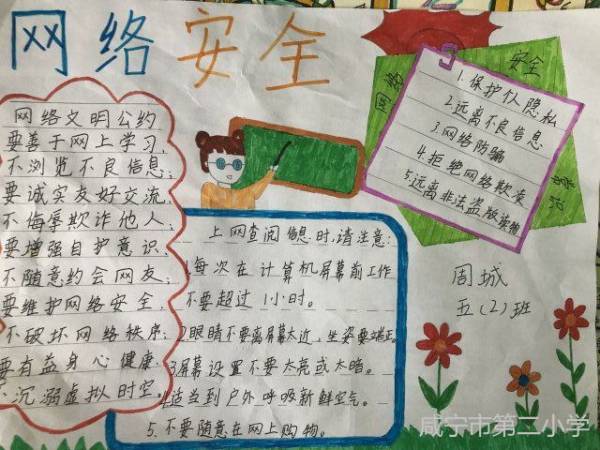 网络安全
网络文明公约
要善于网上学习,
不浏览不良信息;
要诚实友好交流,
不侮辱欺诈他人;
要增强自护意识,
不随意约会网友;
要维护网络安全,
不破坏网络秩序;
要有益身心健康,
不沉溺虚拟时空。
网络
安全
1.保护仫隐私
2.远离不良信息
3.网络防骗
4.拒绝网络欺友
5.远离非法盗版
上网查阅信息时,请注意:
1.每次在计算机屏幕前工作
不要超过1小时。
2.眼睛不要离屏幕太近,坐姿要端正。
3.屏幕设置不要太亮或太暗。
4.适当到户外呼吸新鲜空气。
5.不要随意在网上购物。
周城
五(2)班
咸宁市第二小学